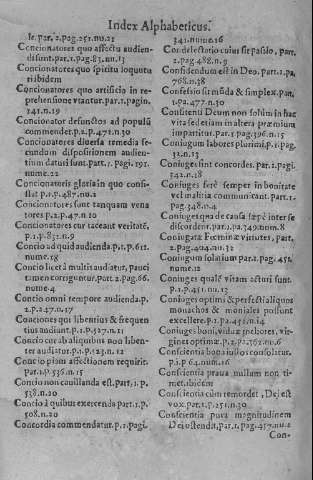 Index Alphabeticus.
le. par. 2. pag. 251. nu. 23
Concionatores quo affectu audien-
di sunt. par. 1. pag. 83. nu. 13
Concionatores quo spiritu loquutu
ri ibidem
Concionatores quo artificio in re-
prehensione vtantur. par. 1. pagin.
241. n. 19
Concionator defunctos ad populū
commendet. p. 1. p. 471. n. 30
Concionatores diuersa tremedia se-
cundum dispositionem audien-
tium daturi sunt. part. 1. pagi. 191.
nume. 22
Concionatoris gloria in quo consi-
stat p. 1. p. 487. nu. 2
Concionatores sunt tanquam vena
tores p. 2. p. 47. n. 20
Concionatores cur taceant veritatē.
p. 1. p. 832. n. 9
Concio ad quid audienda. p. 1. p. 612.
nume. 18
Concio licet à multis audiatur, pauci
tamen corriguntur. part. 2. pag. 66.
nume. 4
Concio omni tempore audienda. p.
2. p. 27. n. 17
Conciones qui libentius & frequen
tius audiant. p. 1. p. 527. n. 21
Concio cur ab aliquibus non liben-
ter audiatur. p. 1. p. 523. n. 12
Concio pium affectionem requirit.
par. 1. p. 536. n. 15
Concio non cauillanda est. part. 1. p.
538. n. 20
Concio à quibus exercenda part. 1. p.
508. n. 20
Concordia commendatur. p. 1. pagi.
341. nume. 16
Cor delectatio cuius sit passio, part.
2. pag. 488. n. 9
Confidendum est in Deo. part. 1. pa.
768. n. 38
Confessio sit mūda & simplex. part.
1. pa. 477. n. 30
Consitenti Deum non solum in hac
vita sed etiam in altera præmium
impartitur. par. 1. pag. 396. n. 15
Coniugum labores plurimi. p. 1. pag.
32. n. 13
Coniuges sint concordes. par. 2. pagi.
342. n. 18
Coniuges ferè semper in bonitate
vel malitia communicant. part. 1.
pag. 348. n. 4
Coniuges qua de causa sæpè inter se
discordent. par. 1. pa. 349. nom. 8
Coniugatæ fæminæ virtutes, part.
2. pag. 404. nu. 32
Coniugum solatium par. 2. pag. 451.
nume. 12
Coniuges qualē vitam acturi sunt.
p. 1. p. 451. nu. 13
Coniuges optimi & perfecti aliquos
monachos & moniales possunt
excellere. p. 1. pa. 452. n. 14
Coniuges boni, viduæ meliores, vir-
gines optimæ. p. 2. pa. 562. nu. 6
Conscientia bona iusto consolatur.
p. 1. p. 62. num. 16
Conscientia praua nullum non ti-
met. ibidem
Conscientia cum remordet, Dei est
vox. par. 1. p. 251. n. 30
Conscientia pura magnitudinem
Dei ostendit. par. 1. pag. 457. nu. 2
Con-